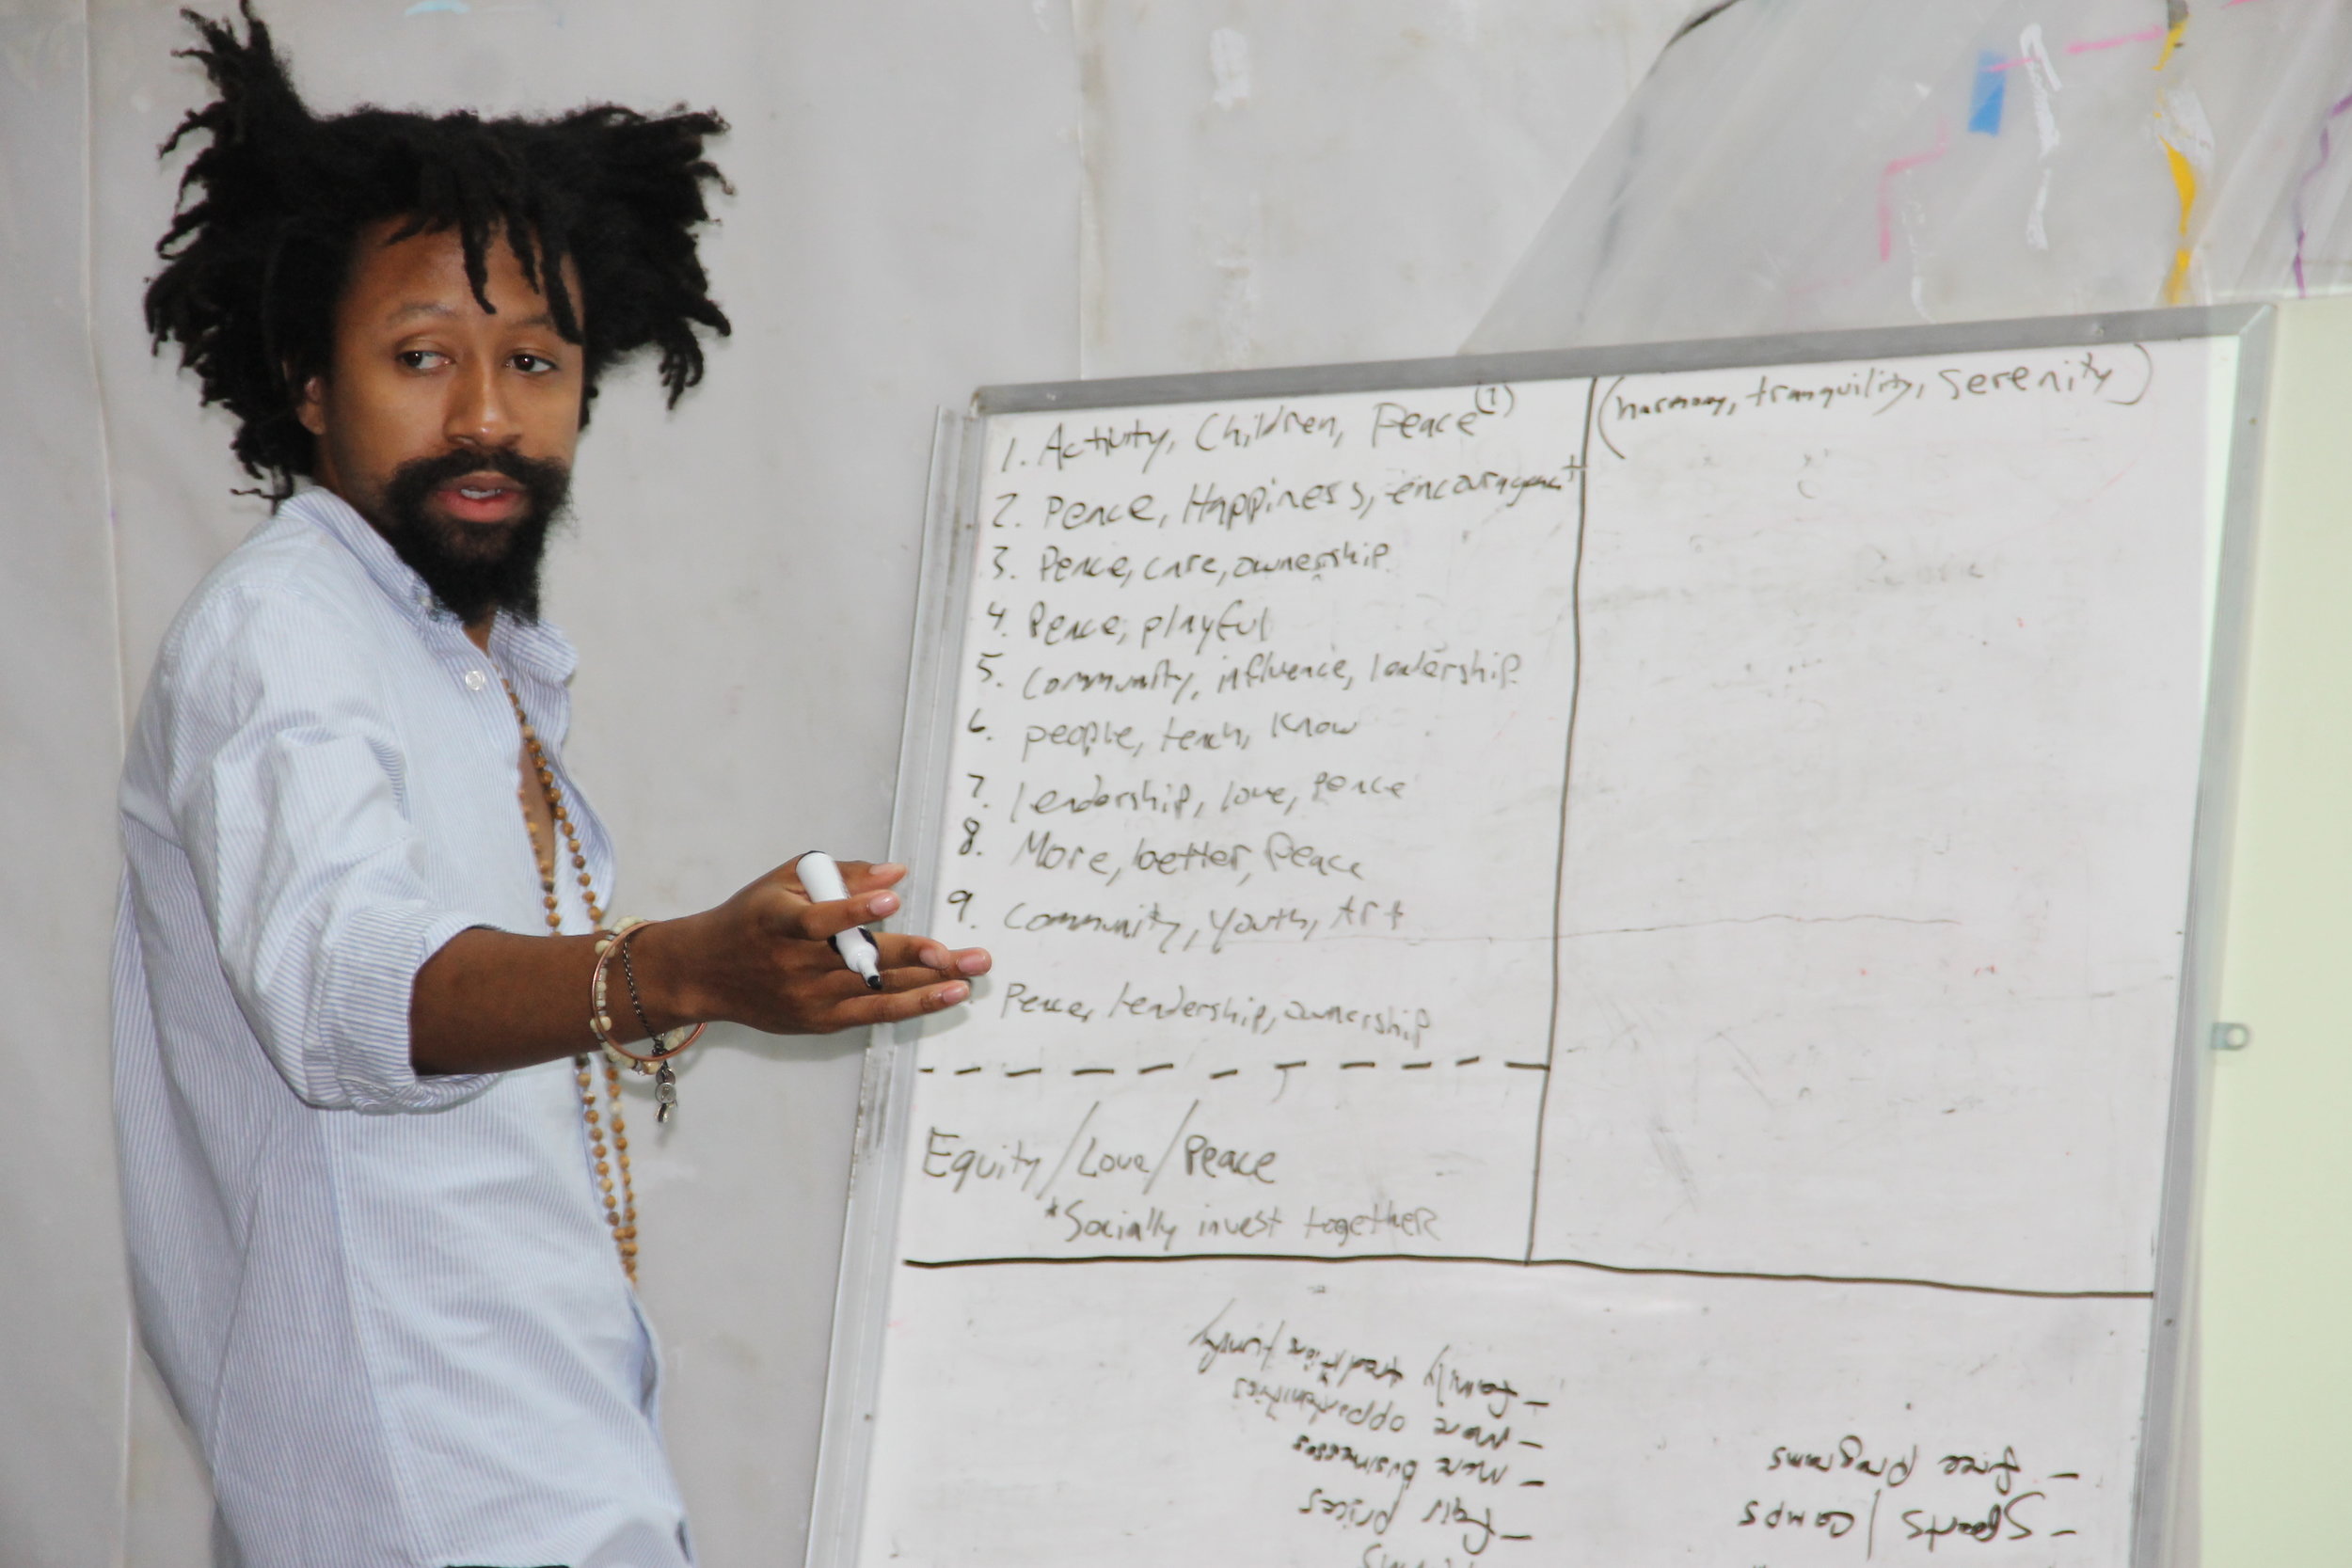 1. Activity, Children, Peace (1)
2. Peace, Happiness, encouragement
3. Peace, care, ownership
4. Peace, playful
5. Community, influence, leadership
6. people, teach, know
7. leadership, love, peace
8. More, better, Peace
9. Community, Youth, Art
Peace, leadership, ownership
Equity/Love/Peace
*Socially invest together
(harmony, tranquility, serenity)
- Fair prices
- More businesses
- More opportunities
- family tradition family
- Sports/camps
- free programs